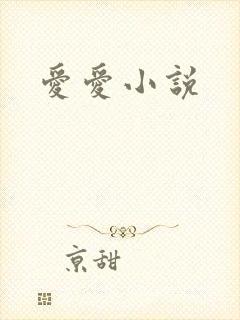 愛愛小說
京甜